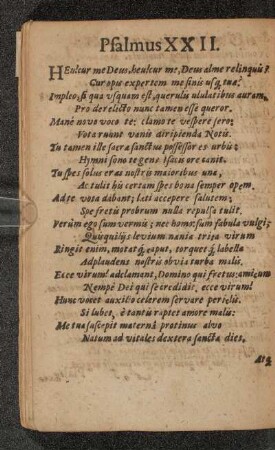 Psalmus XXII.
HEu cur me Deus, heu cur me, Deus alme relinquis?
Cur opis expertem me sinis usq; tuæ?
Impleo, si qua usquam est, querulis ululatibus auram,
Pro derelicto nunc tamen esse queror.
Manè novo voco te: clamo te vespere sero:
Vota ruunt vanis diripienda Notis.
Tu tamen ille sacra sanctus possessor es urbis:
Hymni sono te gens Isacis ore canit.
Tu spes solus eras nostris maioribus una,
Ac tulit his certam spes bona semper opem.
Ad te vota dabant; læti accepere salutem;
Spe fretis probrum nulla repulsa tulit.
Verùm ego sum vermis; nec homo: sum fabula vulgi;
Quisquiliis levium nania trita virûm
Ringit enim, motatq́; caput, torquetq́; labella
Adplaudens nostris obvia turba malis.
Ecce virum! adclamant, Domino qui fretus; amicum
Nempè Dei qui se credidit, ecce virum!
Hunc vocet auxilio celerem servare periclis.
Si lubet, è tantis raptet amore malis:
Me tua suscepit materna protinus alvo
Natum ad vitales dextera sancta dies.
Atq́;